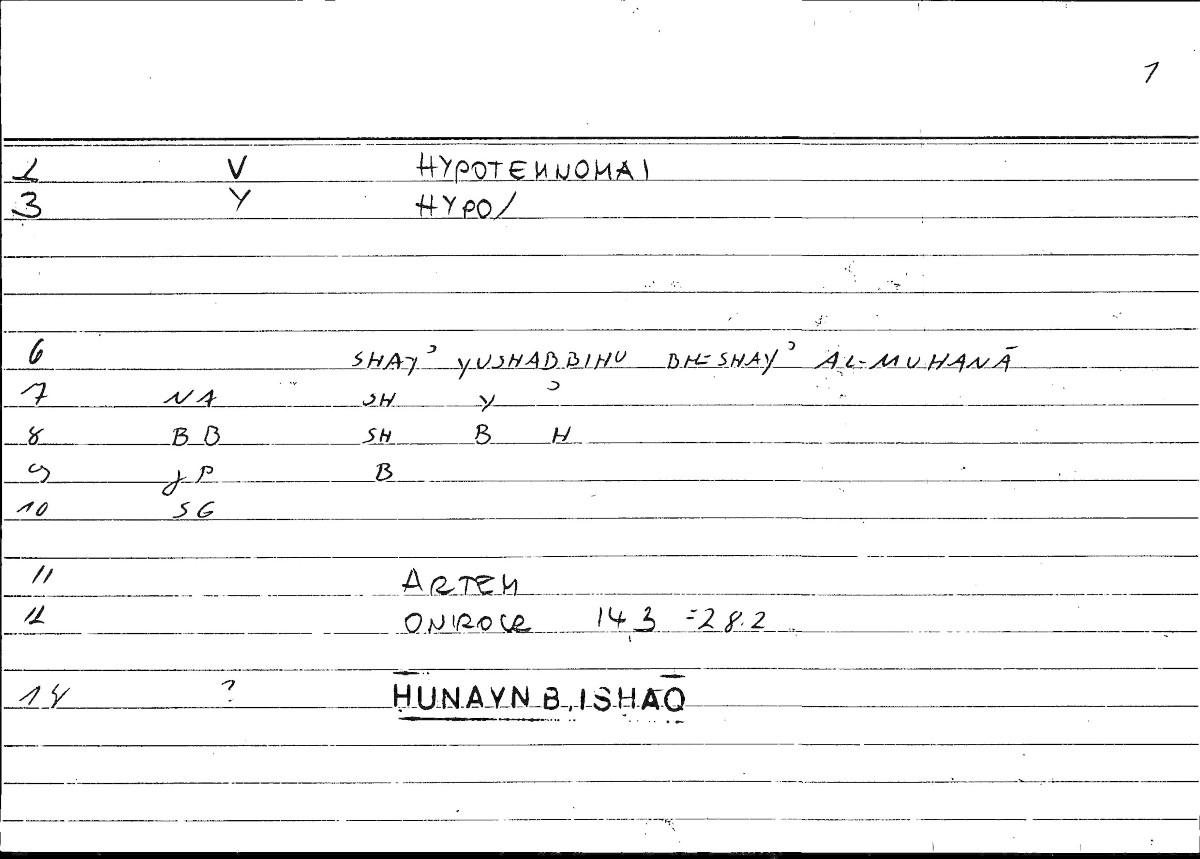 1
2 V HYPOTEMNOMAI
3 Y HYPO/
6 SHAYʾ YUSHABBIHU BI-L-SHAYʾ AL-MUHANĀ
7 NA SH Y ʾ
8 BB SH B H
9 JP B
10 SG
11 ARTEM
12 ONIROCR 143 = 28.2
14 ? HUNAYN B. ISHAQ